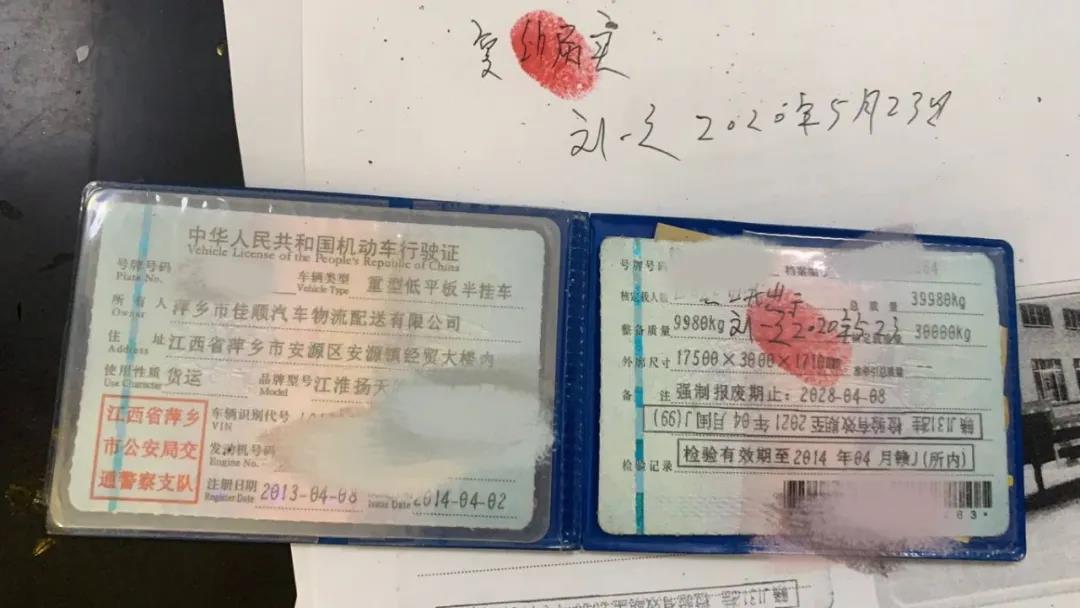 刘一之 2020年5月23日
中华人民共和国机动车行驶证
Vehicle License of the People's Republic of China
号牌号码
Plate No.
车辆类型 重型低平板半挂车
Vehicle Type
所有人 萍乡市佳顺汽车物流配送有限公司
Owner
住址 江西省萍乡市安源区安源镇经贸大楼内
Address
使用性质 货运
Use Character
品牌型号 江淮扬天
Model
江西省萍乡
市公安局交
通警察支队
车辆识别代号
VIN
发动机号码
Engine No.
注册日期 2013-04-08
Register Date
Issue Date 2014-04-02
号牌号码
核定载人数
总质量 39980kg
整备质量 9980kg
30000kg
刘一之 2020年5月23
外廓尺寸 17500×3000×1710mm
准牵引总质量 --
备注 强制报废期止：2028-04-08
检验有效期至 2021 年 04 月
检验记录 检验有效期至2014 年 04 月赣J(所内)